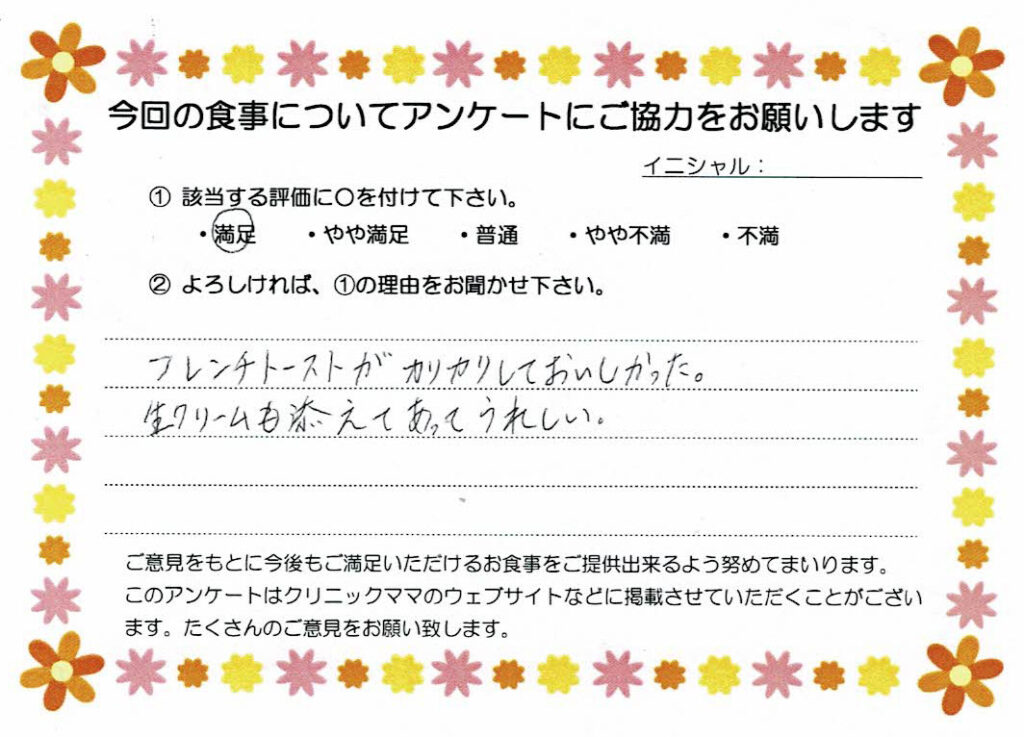 今回の食事についてアンケートにご協力をお願いします
イニシャル：
① 該当する評価に〇を付けて下さい。
・満足 ・やや満足 ・普通 ・やや不満 ・不満
② よろしければ、①の理由をお聞かせ下さい。
フレンチトーストがカリカリしておいしかった。
生クリームも添えてあってうれしい。
ご意見をもとに今後もご満足いただけるお食事をご提供出来るよう努めてまいります。
このアンケートはクリニックママのウェブサイトなどに掲載させていただくことがござい
ます。たくさんのご意見をお願い致します。